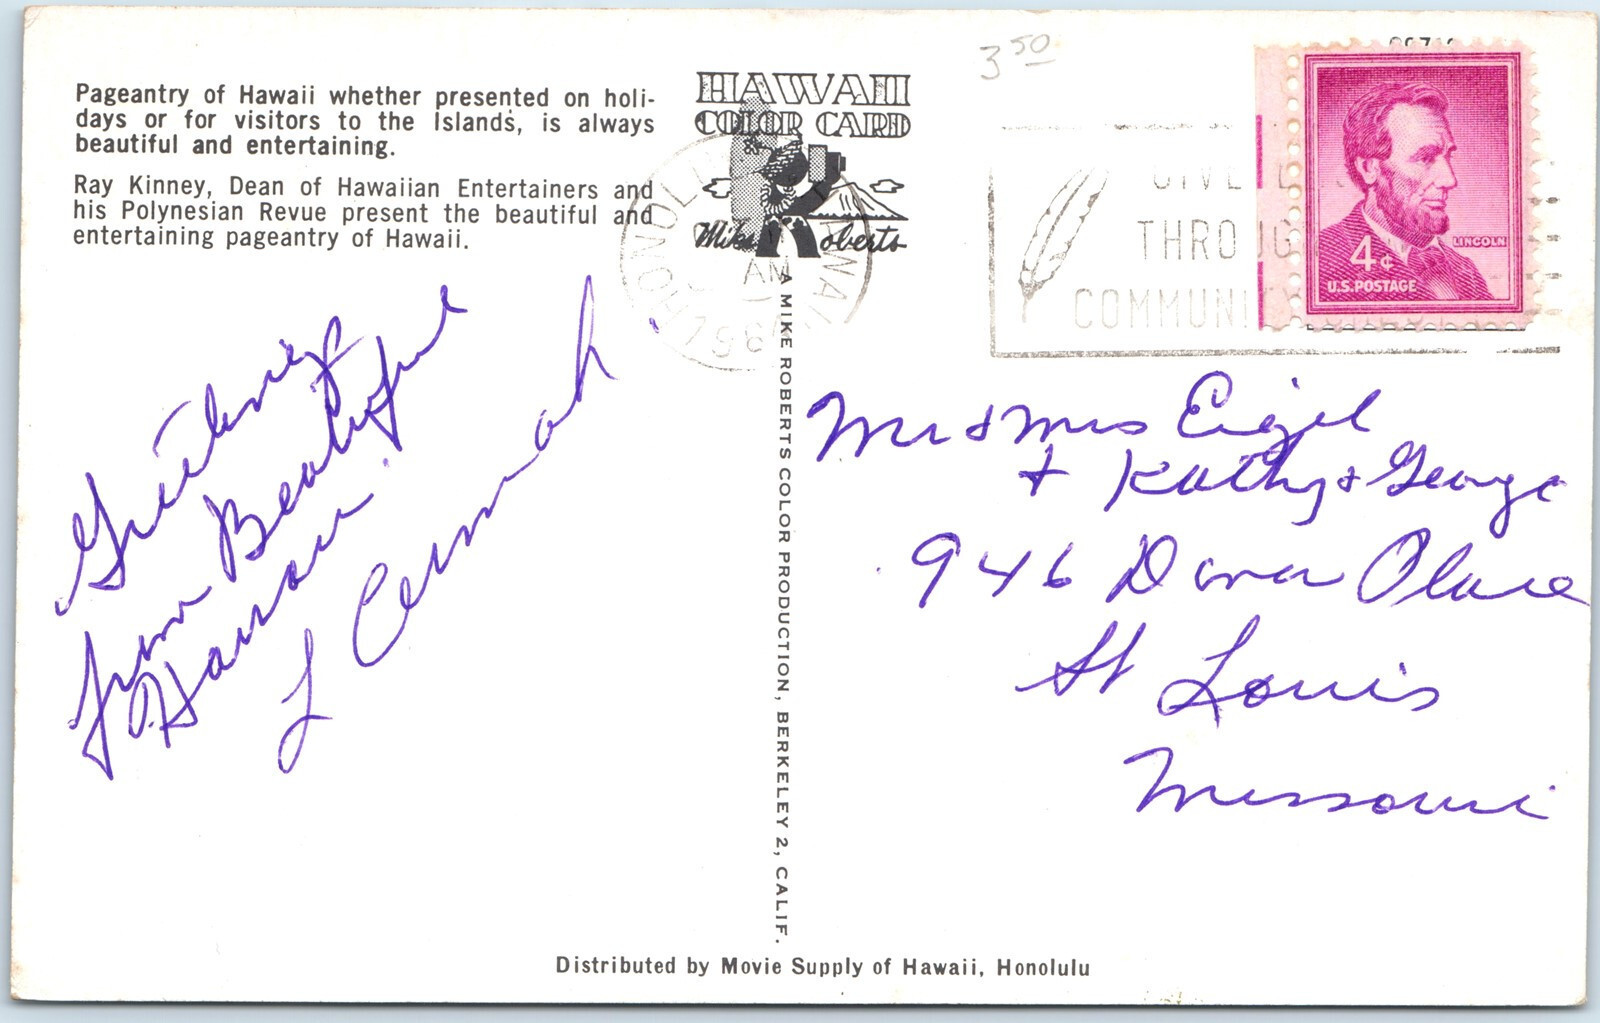 Pageantry of Hawaii whether presented on holi-
days or for visitors to the Islands, is always
beautiful and entertaining.
Ray Kinney, Dean of Hawaiian Entertainers and
his Polynesian Revue present the beautiful and
entertaining pageantry of Hawaii.
HAWAII
COLOR CARD
Mike Roberts
HONOLULU
AM
3 50
GIVE
THROUG
COMMUNITY
4¢
LINCOLN
U.S. POSTAGE
Greetings
from Beautiful
Hawaii.
L Cermak
A MIKE ROBERTS COLOR PRODUCTION, BERKELEY 2, CALIF.
Mr & Mrs Eigel
+ Kathy & George
946 Dover Place
St Louis
Missouri
Distributed by Movie Supply of Hawaii, Honolulu